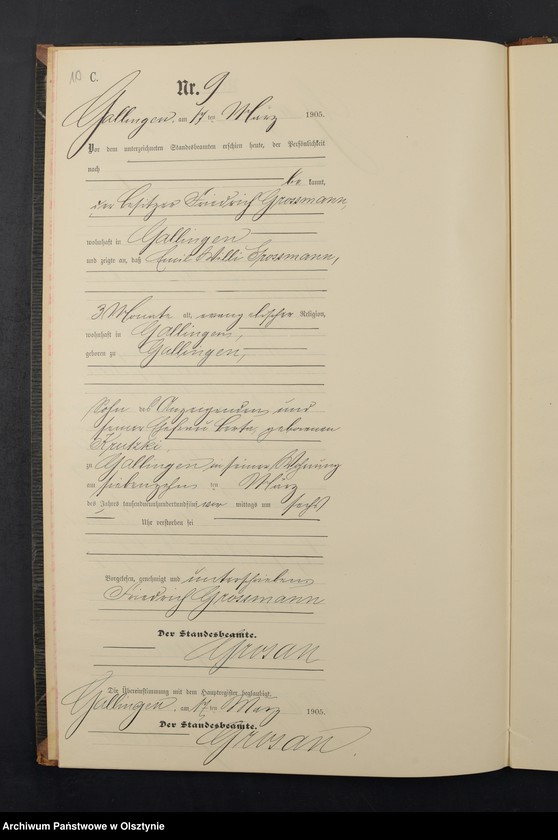 10 C.
Nr. 9
Gallingen, am 17 ten März 1905.
Vor dem unterzeichneten Standesbeamten erschien heute, der Persönlichkeit
nach
be kannt,
der Besitzer Friedrich Grossmann,
wohnhaft in Gallingen
und zeigte an, daß Emil Willi Grossmann,
3 Monate alt, evangelischer Religion,
wohnhaft in Gallingen,
geboren zu Gallingen,
Sohn des Anzeigenden und
seiner Ehefrau Berta, geborenen
Krutzki
zu Gallingen in seiner Wohnung
am siebenzehnten März
des Jahres tausendneunhundertundfünf, vor mittags um sechs
Uhr verstorben sei
Vorgelesen, genehmigt und unterschrieben
Friedrich Grossmann
Der Standesbeamte.
Grosan
Die Übereinstimmung mit dem Hauptregister beglaubigt.
Gallingen, am 17 ten März 1905.
Der Standesbeamte.
Grosan.
Archiwum Państwowe w Olsztynie